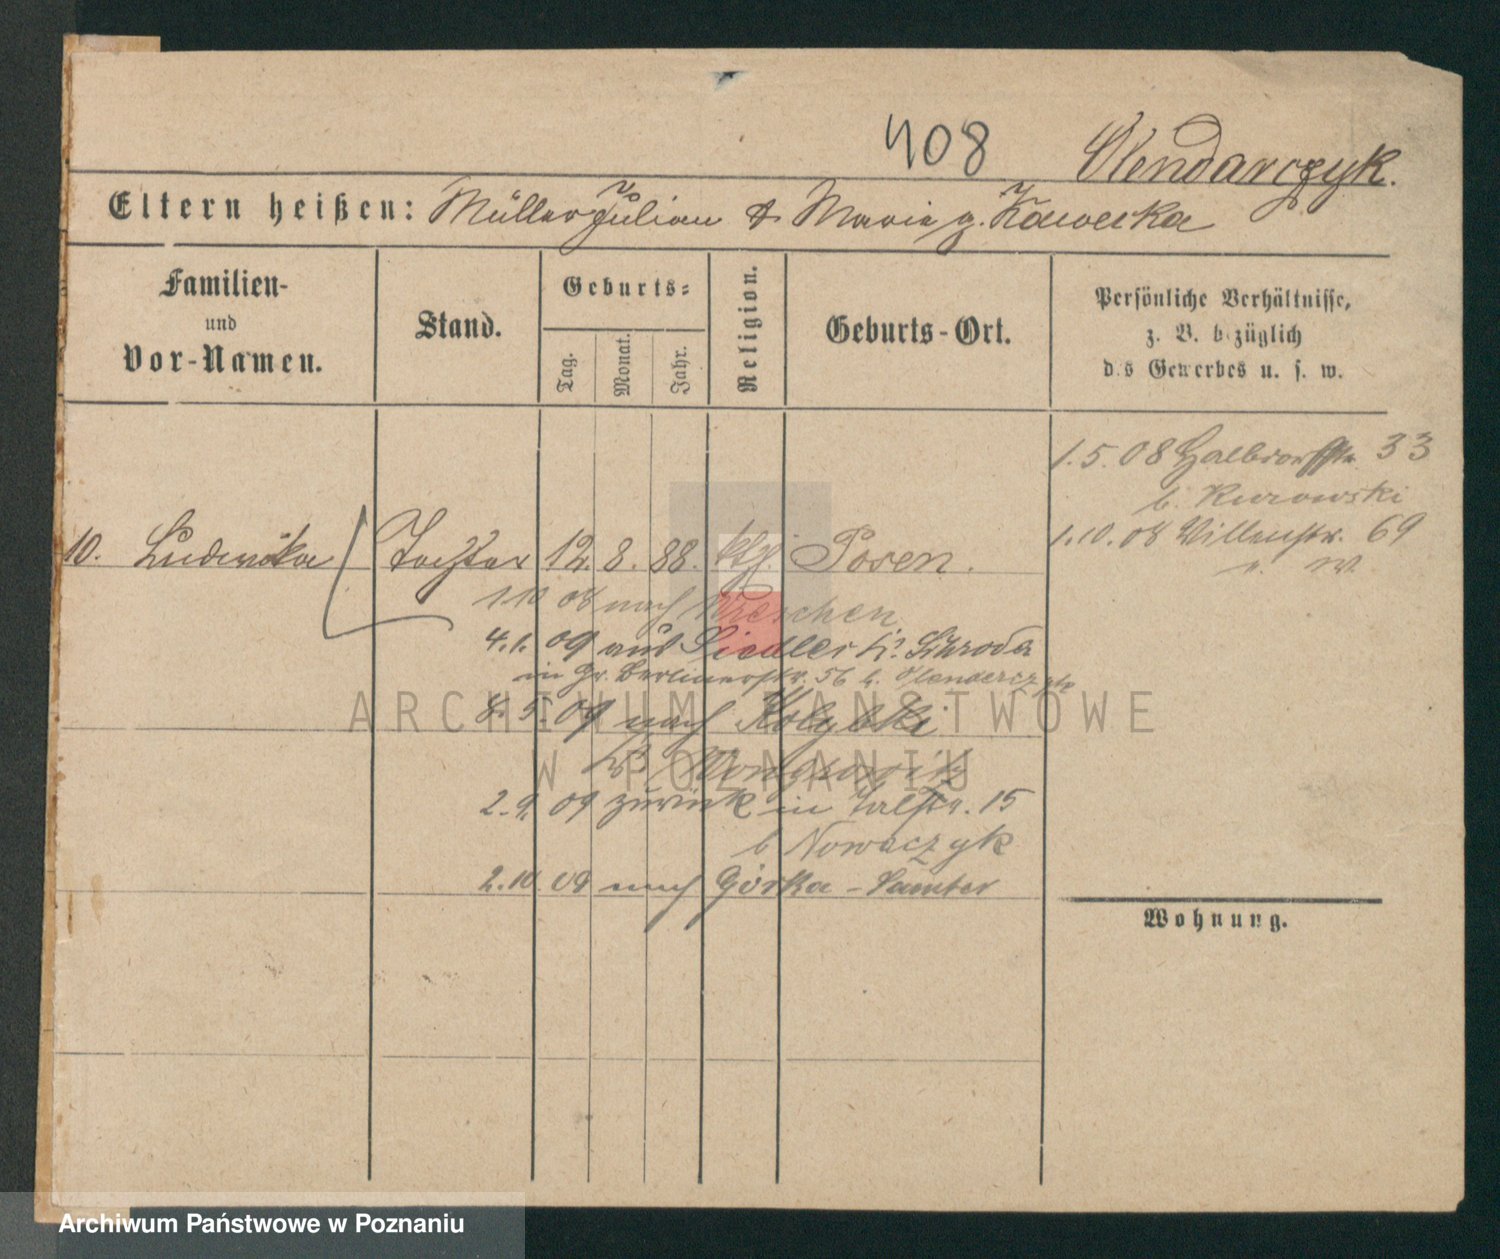 408 Olendarczyk.
Eltern heißen: Müller Julian & Marie g. Kawecka
Familien-
und
Vor-Namen.
Stand.
Geburts-
Tag.
Monat.
Jahr.
Religion.
Geburts-Ort.
Persönliche Verhältnisse,
z. B. bezüglich
des Gewerbes u. s. w.
1.5.08 33
b. Kurowski
1.10.08 Villenstr. 69
10. Ludwika Tochter 12. 8. 88. kth. Posen.
1 10 08 nach Wreschen
4.1.09 aus Siedlec Kr. Schroda
in Gr. Berlinerstr. 56 b. Olenderczyk
8.5.09 nach Kolybki
2.9.09 zurück in Talstr. 15
b Nowaczyk
2.10 09 nach Górka - Samter
Wohnung.
ARCHIWUM PAŃSTWOWE
W POZNANIU
Archiwum Państwowe w Poznaniu